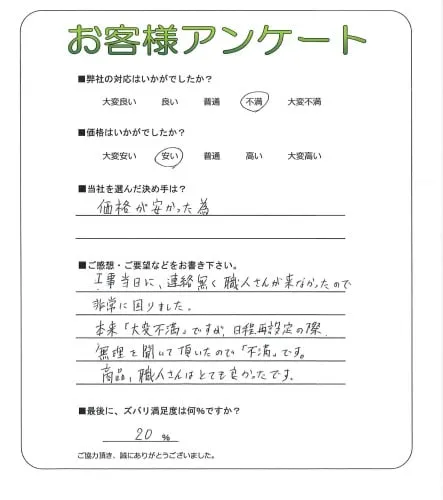 お客様アンケート
■弊社の対応はいかがでしたか?
大変良い 良い 普通 不満 大変不満
■価格はいかがでしたか?
大変安い 安い 普通 高い 大変高い
■当社を選んだ決め手は?
価格が安かった為
■ご感想・ご要望などをお書き下さい。
工事当日に、連絡無く職人さんが来なかったので
非常に困りました。
本来「大変不満」ですが、日程再設定の際、
無理を聞いて頂いたので「不満」です。
商品、職人さんはとても良かったです。
■最後に、ズバリ満足度は何%ですか?
20 %
ご協力頂き、誠にありがとうございました。